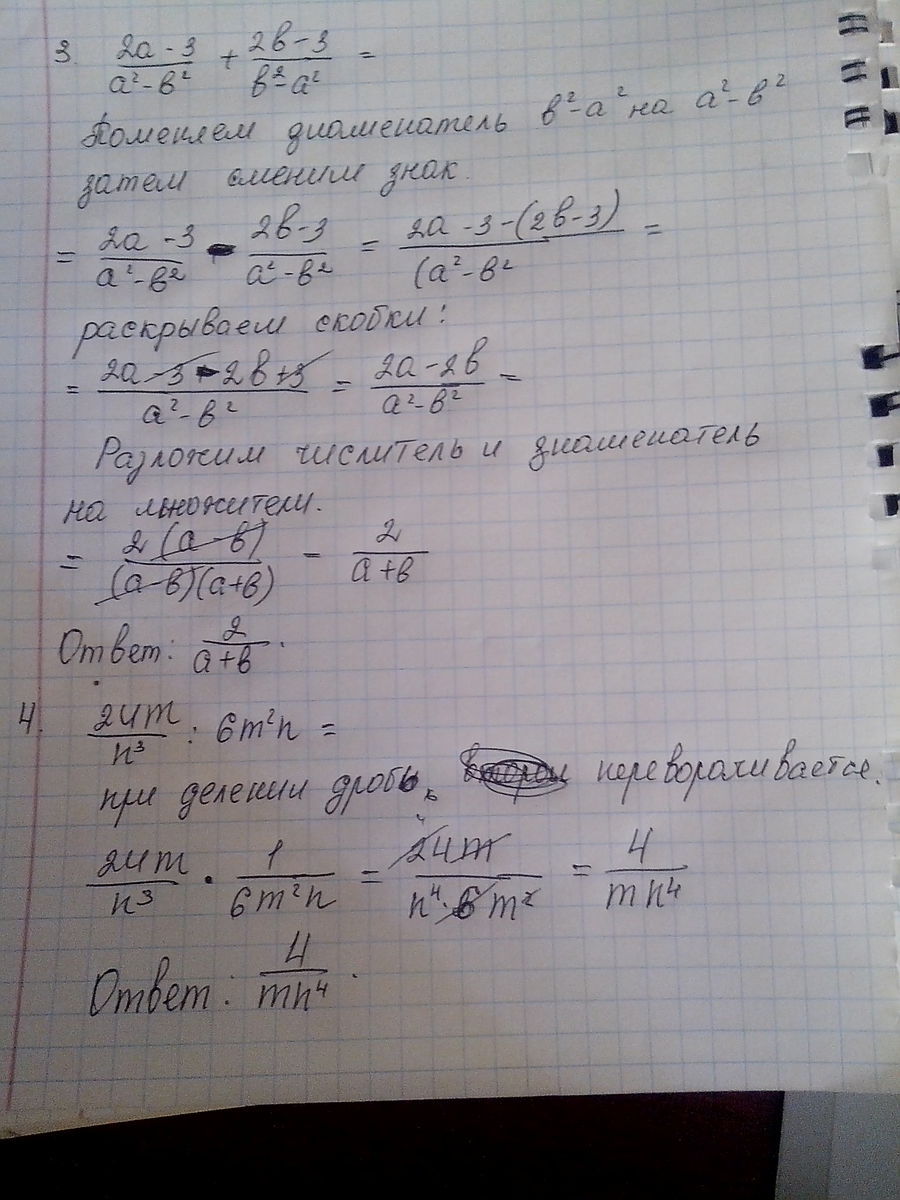 3. (2a - 3)/(a² - b²) + (2b - 3)/(b² - a²) =
Поменяем знаменатель b² - a² на a² - b²
затем сменим знак.
= (2a - 3)/(a² - b²) - (2b - 3)/(a² - b²) = (2a - 3 - (2b - 3))/((a² - b²) =
раскрываем скобки:
= (2a - 3 - 2b + 3)/(a² - b²) = (2a - 2b)/(a² - b²) =
Разложим числитель и знаменатель
на множители.
= (2(a - b))/((a - b)(a + b)) = 2/(a + b)
Ответ: 2/(a + b).
4. 24m/n³ : 6m²n =
при делении дробь переворачивается.
24m/n³ · 1/(6m²n) = 24m/(n⁴ · 6m²) = 4/(mn⁴)
Ответ: 4/(mn⁴).